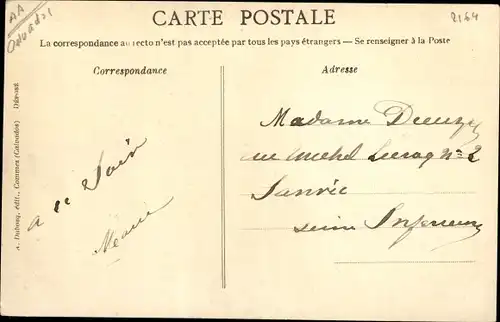 AA
CARTE POSTALE
2164
La correspondance au recto n'est pas acceptée par tous les pays étrangers — Se renseigner à la Poste
Correspondance
Adresse
Madame
rue Michel N° 2
Sanvic
Seine Inferieure
a ce Soir
A. Dubosq, édit., Commes (Calvados) Déposé